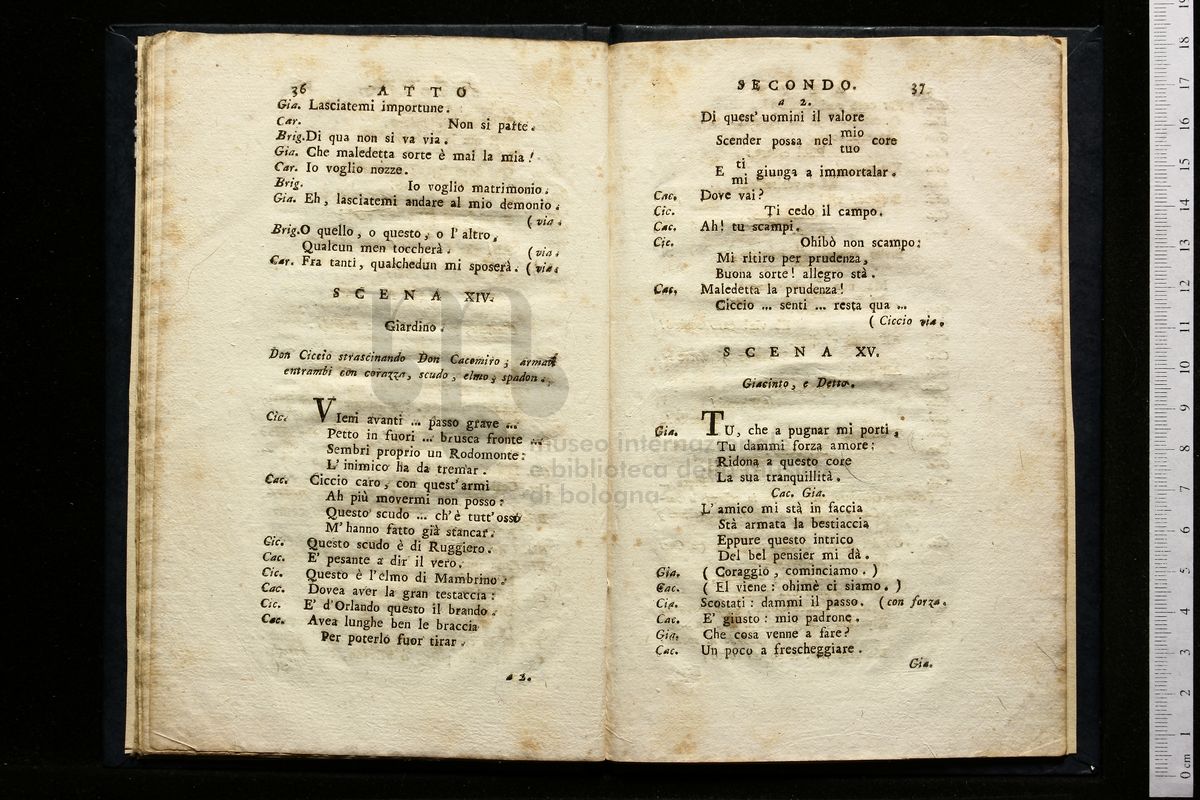 36 ATTO
Gia. Lasciatemi importune.
Car. Non si parte.
Brig. Di qua non si va via.
Gia. Che maledetta sorte è mai la mia!
Car. Io voglio nozze.
Brig. Io voglio matrimonio.
Gia. Eh, lasciatemi andare al mio demonio.
(via.
Brig. O quello, o questo, o l'altro,
Qualcun men toccherà. (via.
Car. Fra tanti, qualchedun mi sposerà. (via.
SCENA XIV.
Giardino.
Don Ciccio strascinando Don Cacomiro, armati
entrambi con corazza, scudo, elmo, spadon.
Cic. Vieni avanti ... passo grave ...
Petto in fuori ... brusca fronte ...
Sembri proprio un Rodomonte:
L'inimico ha da tremar.
Cac. Ciccio caro, con quest'armi
Ah più movermi non posso:
Questo scudo ... ch'è tutt'osso
M'hanno fatto già stancar.
Cic. Questo scudo è di Ruggiero.
Cac. E' pesante a dir il vero.
Cic. Questo è l'elmo di Mambrino.
Cac. Dovea aver la gran testaccia:
Cic. E' d'Orlando questo il brando.
Cac. Avea lunghe ben le braccia
Per poterlo fuor tirar.
a 2.
SECONDO. 37
a 2.
Di quest'uomini il valore
Scender possa nel mio core
tuo
E ti giunga a immortalar.
mi
Cac. Dove vai?
Cic. Ti cedo il campo.
Cac. Ah! tu scampi.
Cic. Ohibò non scampo:
Mi ritiro per prudenza,
Buona sorte! allegro stà.
Cac. Maledetta la prudenza!
Ciccio ... senti ... resta qua ...
(Ciccio via.
SCENA XV.
Giacinto, e Detto.
Gia. TU, che a pugnar mi porti,
Tu dammi forza amore:
Ridona a questo core
La sua tranquillità.
Cac. Gia.
L'amico mi stà in faccia
Stà armata la bestiaccia
Eppure questo intrico
Del bel pensier mi dà.
Gia. (Coraggio, cominciamo.)
Cac. (El viene: ohimè ci siamo.)
Gia. Scostati: dammi il passo. (con forza.
Cac. E' giusto: mio padrone.
Gia. Che cosa venne a fare?
Cac. Un poco a frescheggiare.
Gia.
museo internaz
e biblioteca della
di bologna
0 cm 1 2 3 4 5 6 7 8 9 10 11 12 13 14 15 16 17 18 19